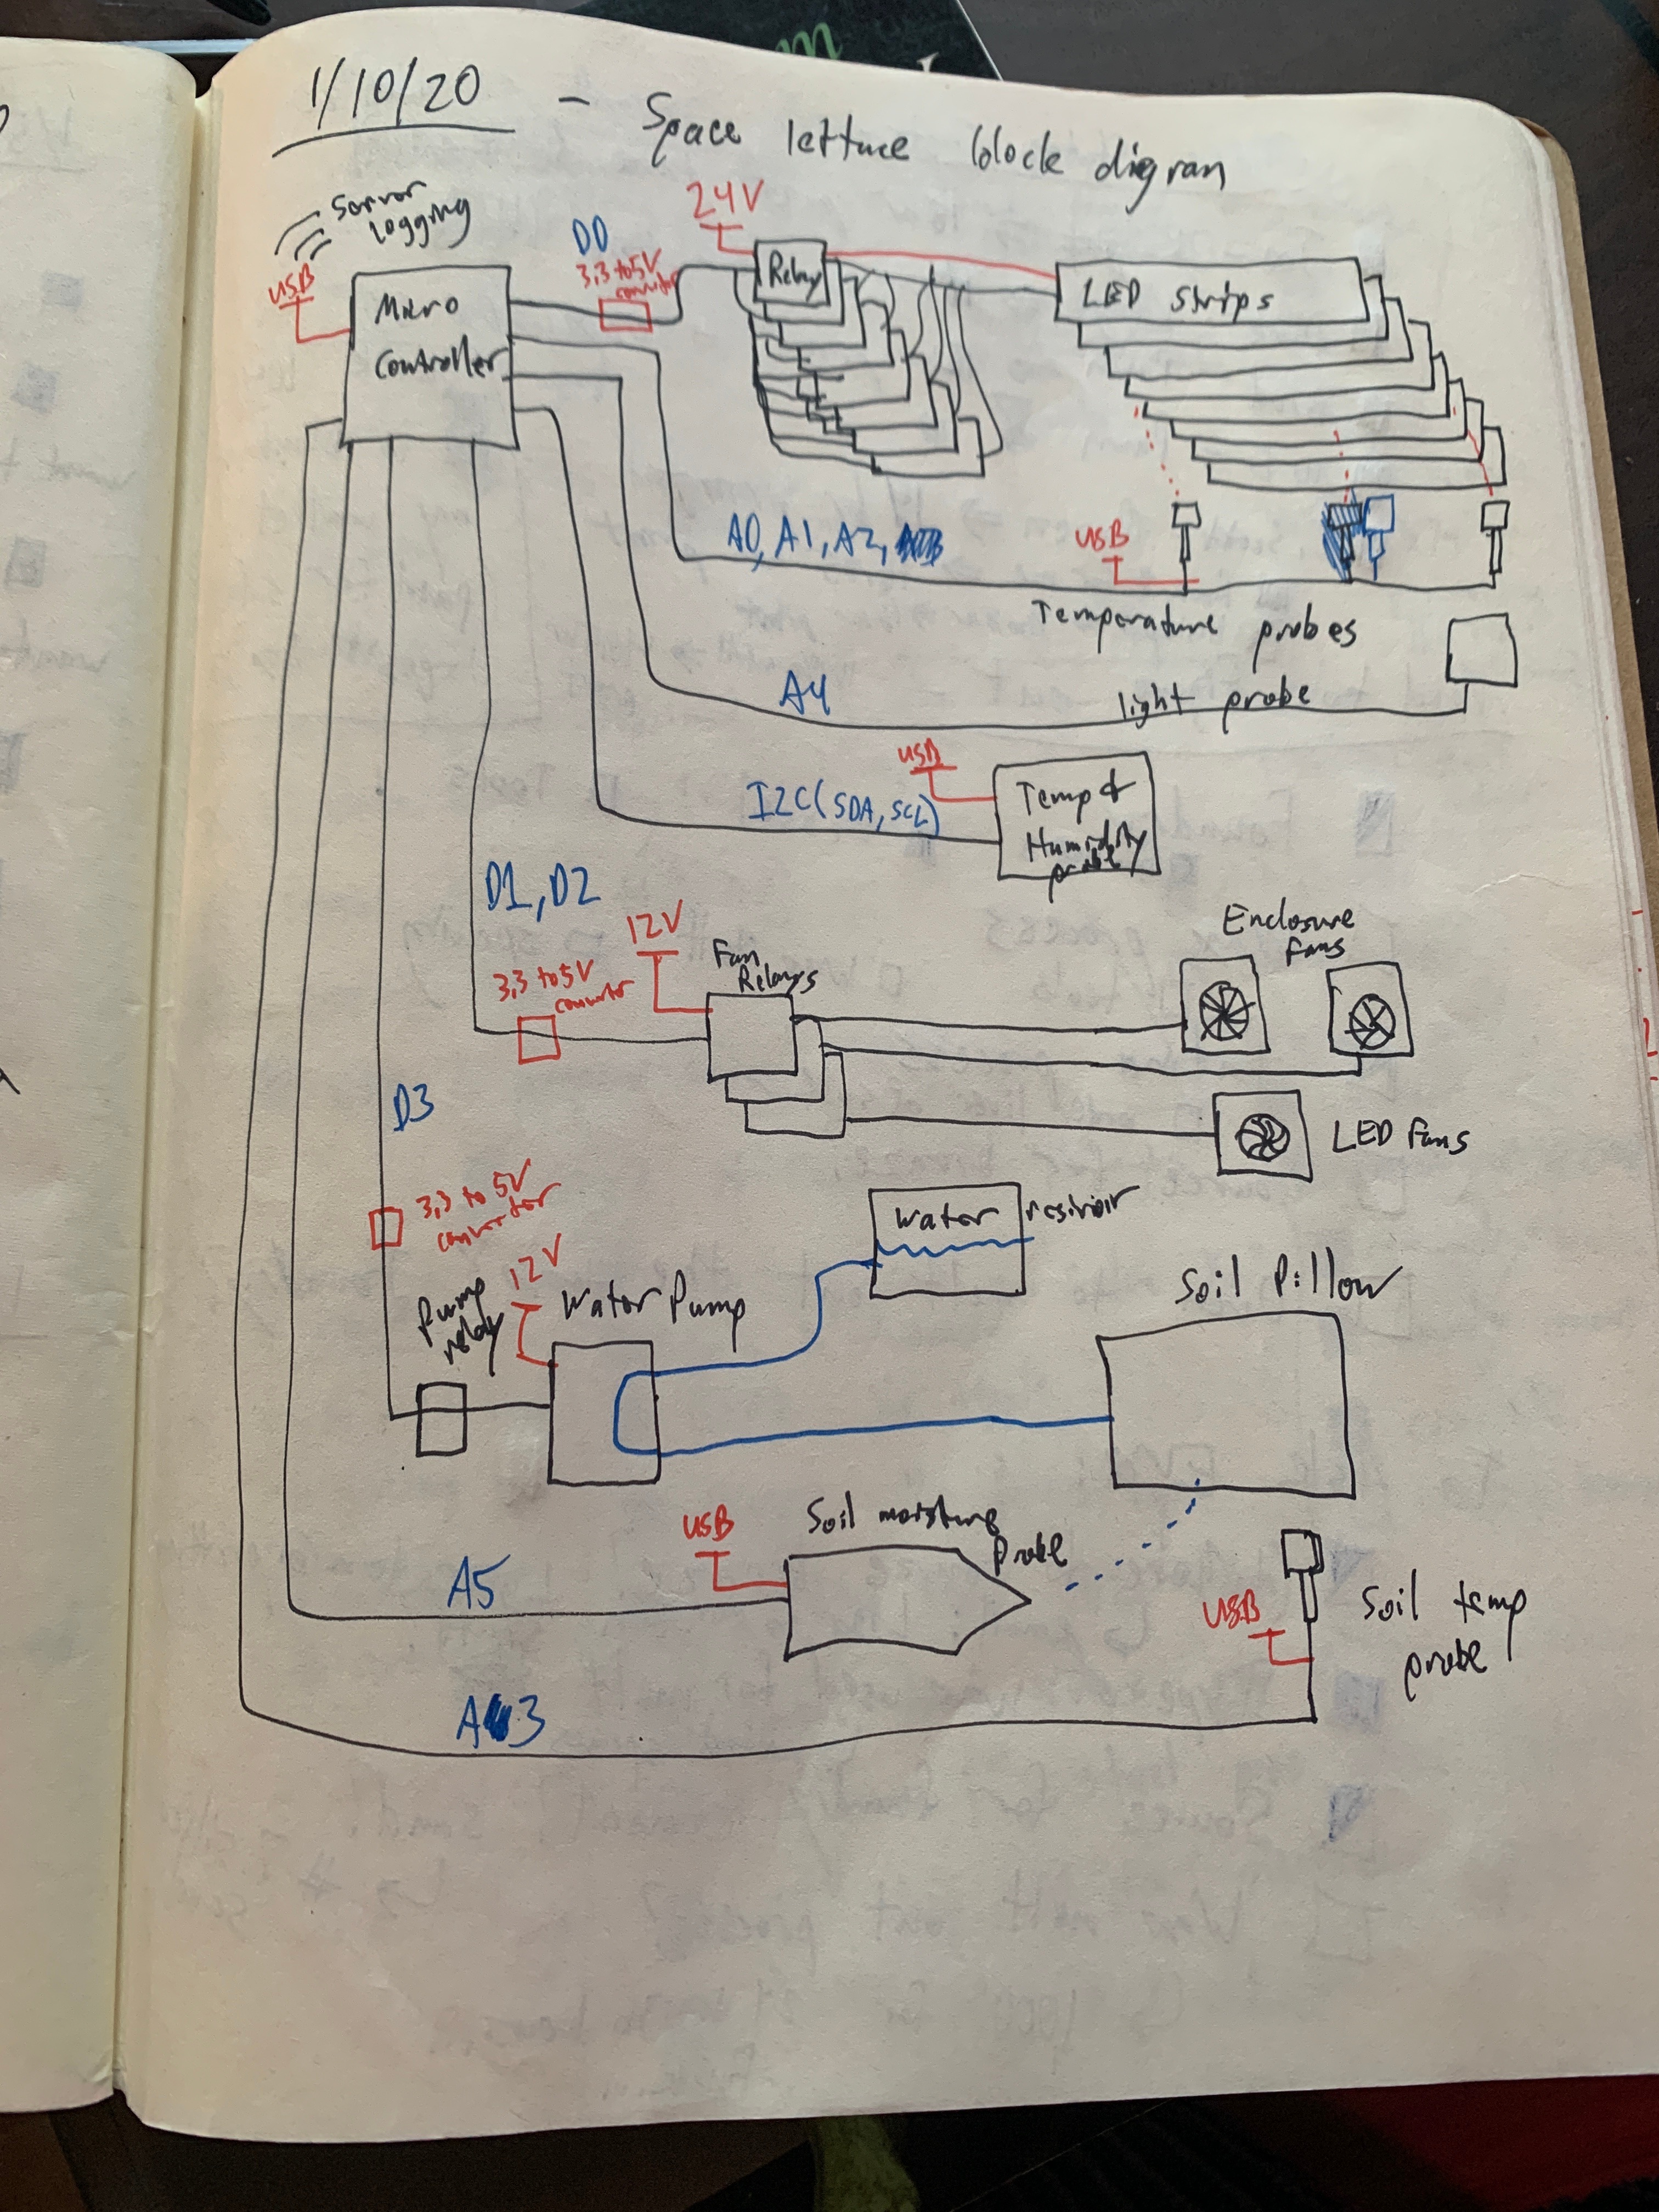 1/10/20 - Space lettuce block digram
Server
logging
USB
Micro
Controller
D0
3.3 to 5V
24V
Relay
LED Strips
A0, A1, A2,
USB
Temperature probes
A4
light probe
I2C (SDA, SCL)
USB
Temp &
Humidity
probe
D1, D2
3.3 to 5V
12V
Fan
Relays
Enclosure
fans
LED Fans
D3
3.3 to 5V
Pump
relay
12V
Water Pump
Water
Soil Pillow
A5
USB
Soil moisture
Probe
USB
Soil temp
probe
A3